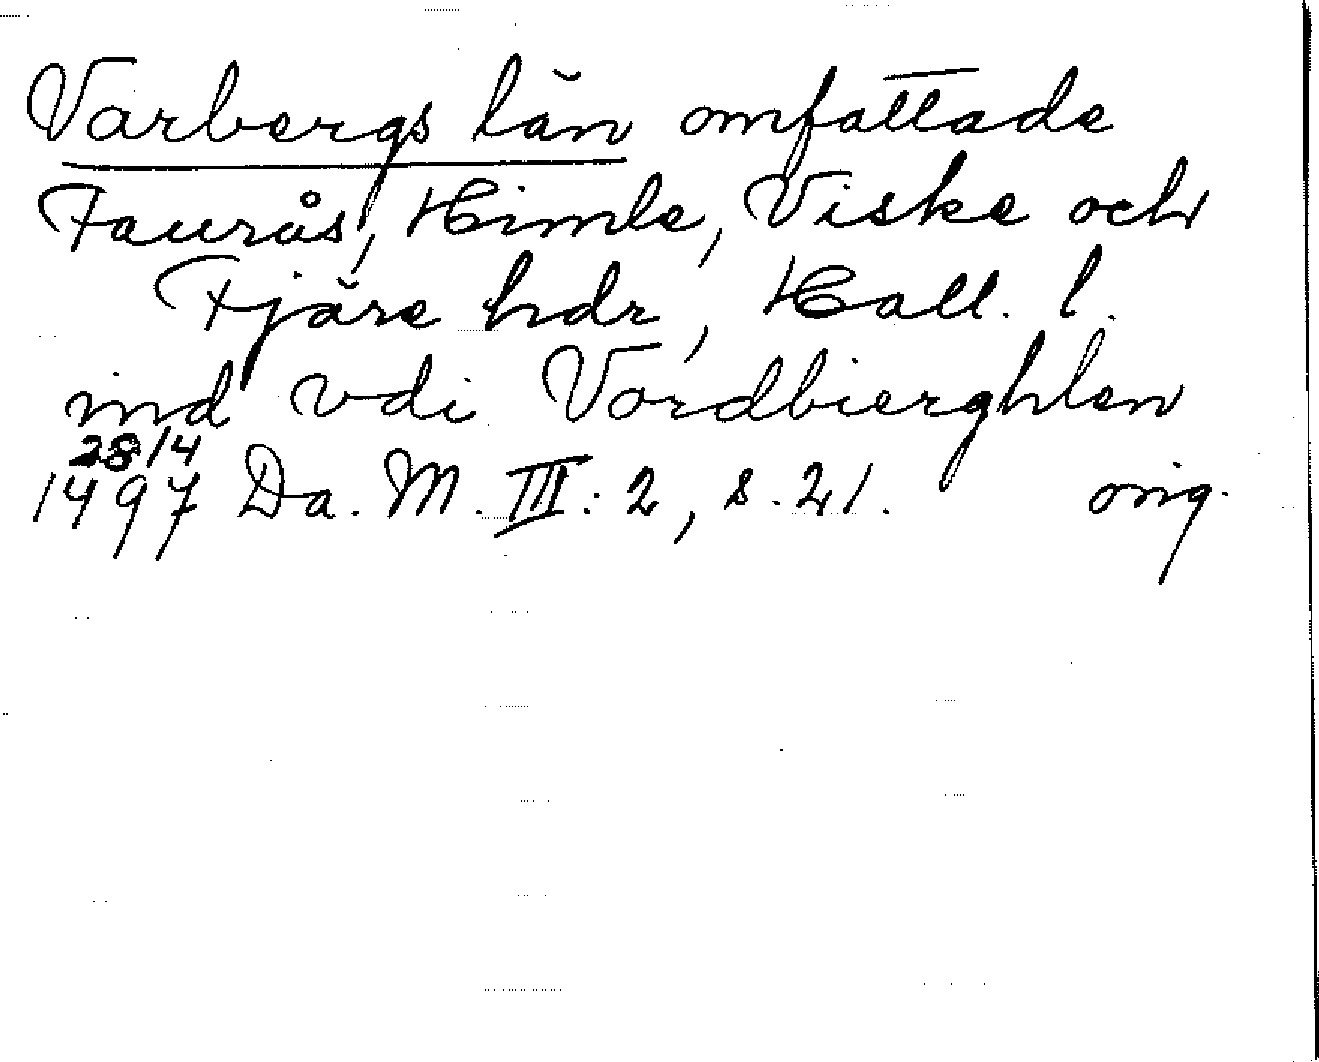 Varbergs län omfattade
Faurås, Himle, Viske och
Fjäre hdr, Hall. l.
ind vdi Vardbierghlen
28/4
1497 Da. M. III: 2, s. 21. orig.